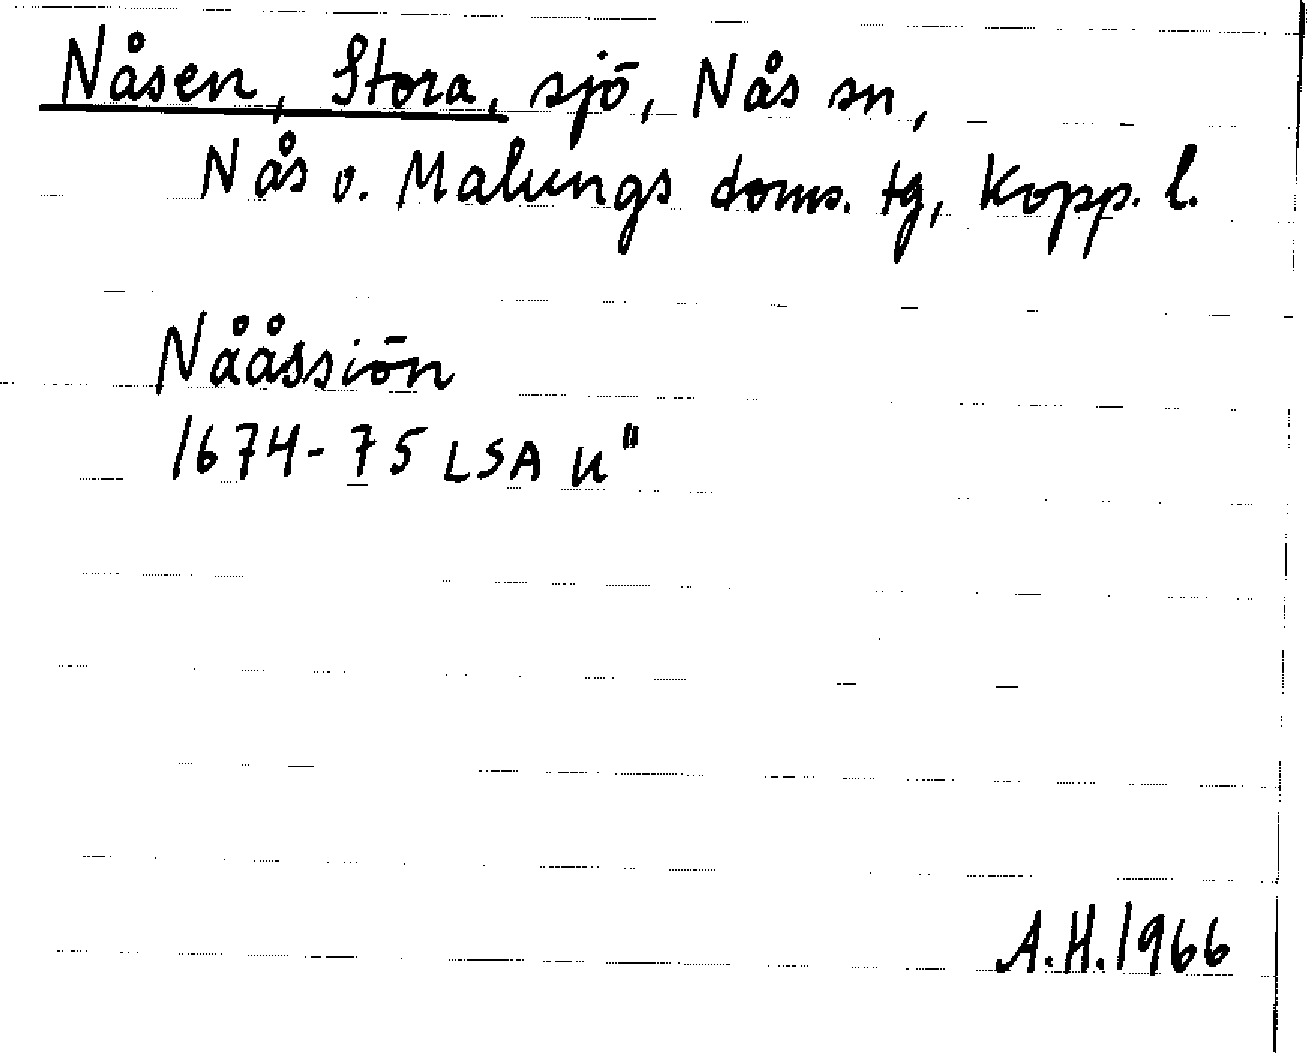 Nåsen, Stora, sjö, Nås sn,
Nås o. Malungs doms. tg, Kopp. l.
Nååssiön
1674-75 LSA U"
A.H. 1966